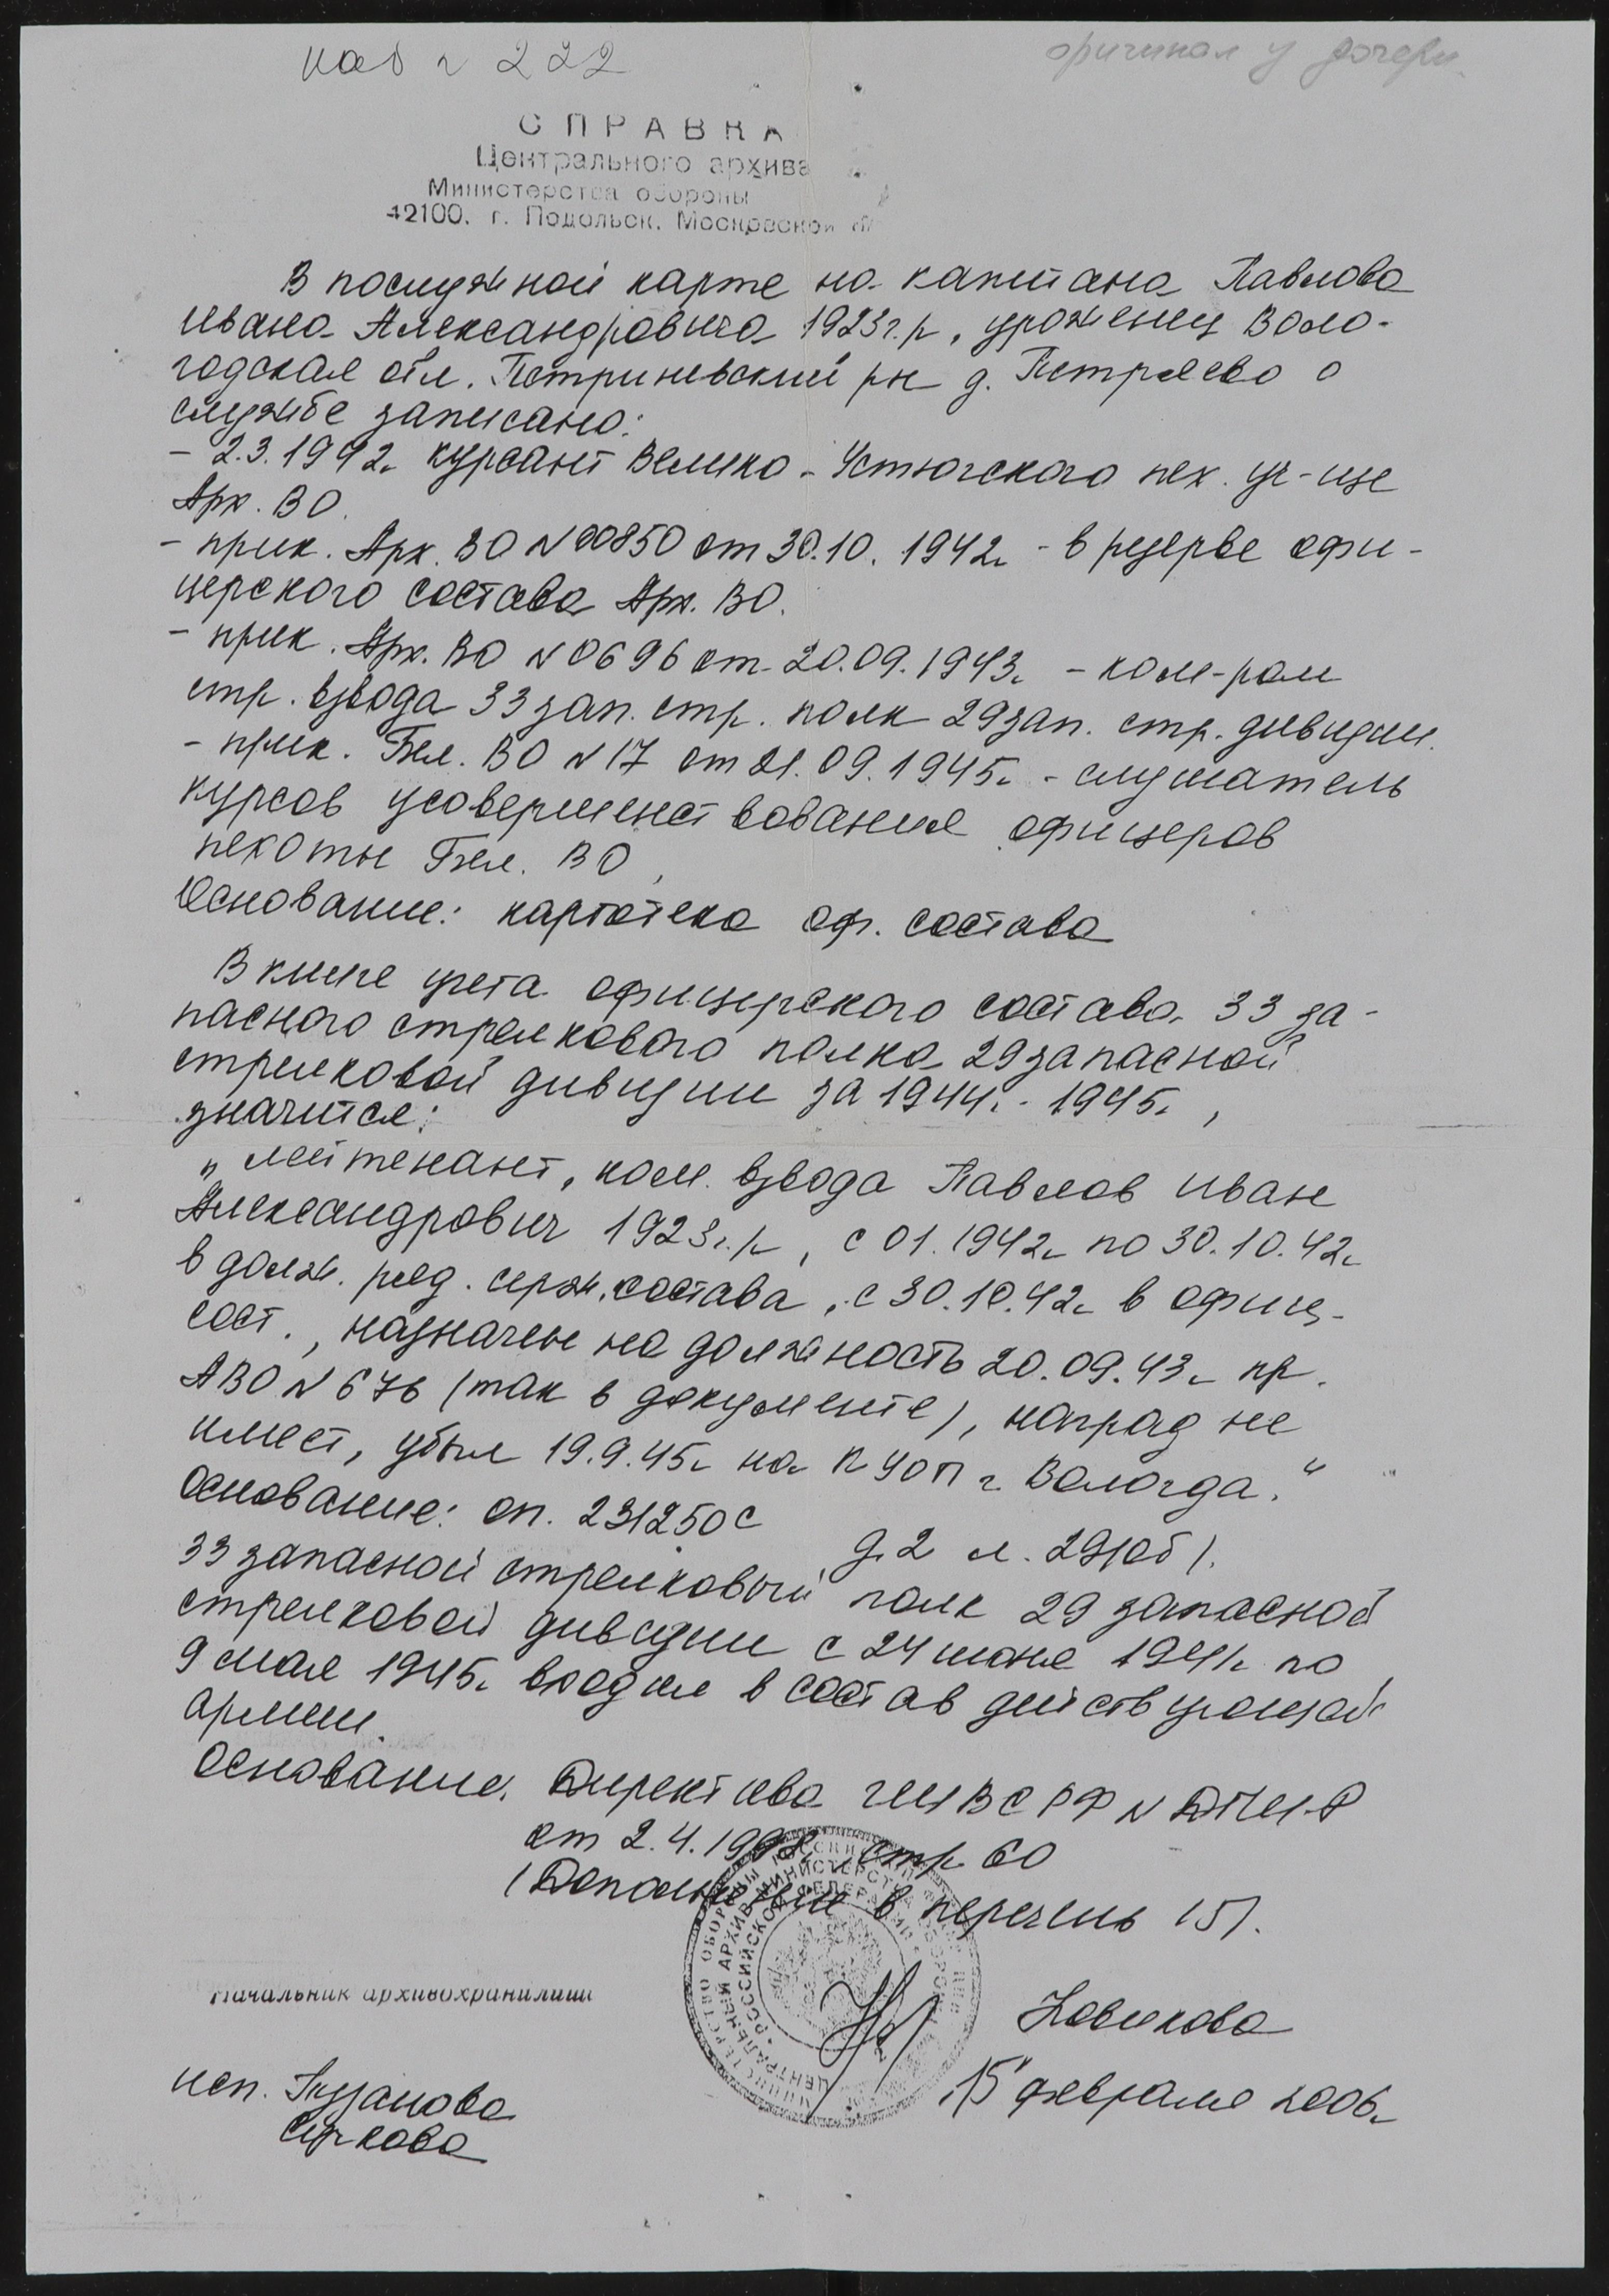 каб № 222
оригинал у дочери
СПРАВКА
Центрального архива
Министерства обороны
42100, г. Подольск, Московской
В послужной карте на капитана Павлова
Ивана Александровича 1923г.р, уроженец Воло-
годская обл. Петриневский рн д. Петряево о
службе записано:
– 2.3.1942г курсант Велико-Устюгского пех. уч-ще
Арх. ВО.
– прик. Арх. ВО №00850 от 30.10.1942г - в резерве офи-
церского состава Арх. ВО.
– прик. Арх. ВО №0696 от 20.09.1943г – ком-ром
стр. взвода 33 зап. стр. полк 29 зап. стр. дивизии.
– прик. Бел. ВО №17 от 21.09.1945г - слушатель
курсов усовершенствования офицеров
пехоты Бел. ВО,
Основание: картотека оф. состава
В книге учета офицерского состава 33 за-
пасного стрелкового полка 29 запасной
стрелковой дивизии за 1944г - 1945г,
значится:
„лейтенант, ком. взвода Павлов Иван
Александрович 1923г.р, с 01.1942г по 30.10.42г
в долж. ряд. серж. состава, с 30.10.42г в офиц-
сост., назначен на должность 20.09.43г пр.
АВО №676 (так в документе), наград не
имеет, убыл 19.9.45г на КУОП г Вологда."
Основание: оп. 231250с д.2 л. 29(об).
33 запасной стрелковый полк 29 запасной
стрелковой дивизии с 24 июня 1941г по
9 мая 1945г входил в состав действующей
армии.
Основание. Директива ГШ ВС РФ №
от 2.4.1998 стр 60
(Дополнение в перечень 15).
Начальник архивохранилища
Новикова
15 февраля 2006г
исп.
МИНИСТЕРСТВО ОБОРОНЫ РОССИЙСКОЙ
ЦЕНТРАЛЬНЫЙ АРХИВ МИНИСТЕРСТВА
РОССИЙСКОЙ ФЕДЕРАЦИИ